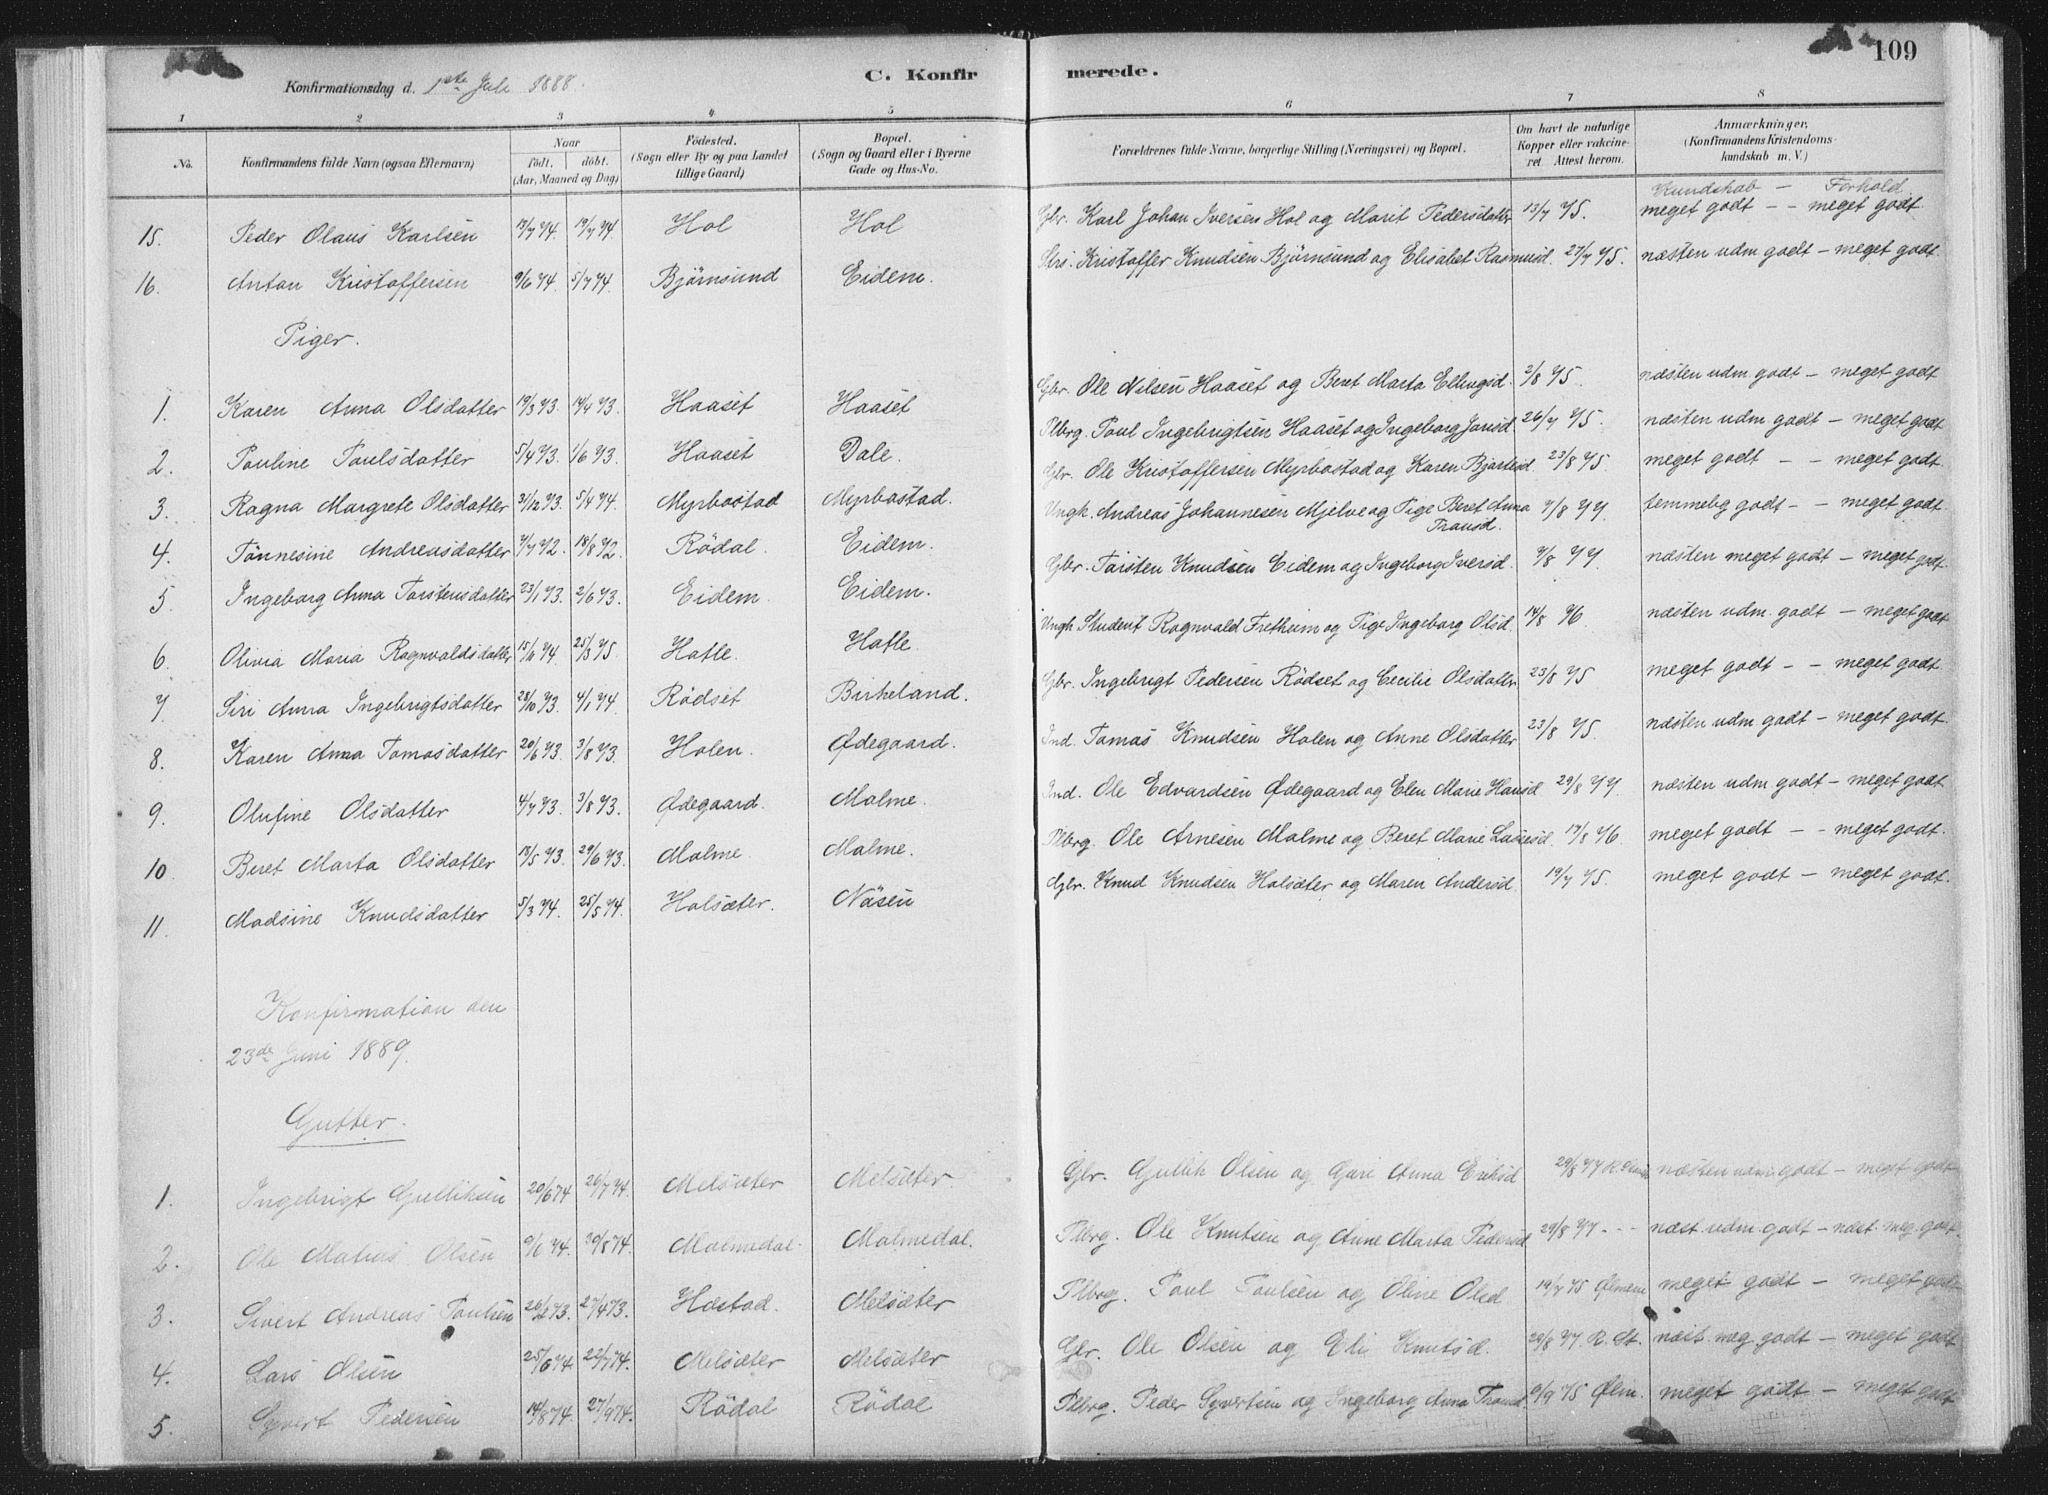 109
Konfirmationsdag d. 1ste Juli 1888.
C. Konfirmerede.
1 2 3 4 5 6 7 8
No. Konfirmandens fulde Navn (ogsaa Efternavn) Naar født, døbt. (Aar, Maaned og Dag) Fødested. (Sogn eller By og paa Landet tillige Gaard) Bopæl. (Sogn og Gaard eller i Byerne Gade og Hus-No. Forældrenes fulde Navne, borgerlige Stilling (Næringsvei) og Bopæl. Om havt de naturlige Kopper eller vakcineret Attest herom. Anmærkninger. (Konfirmandens Kristendomskundskab m. V.)
Kundskab — Forhold
15. Peder Olaus Karlsen 13/4 74. 19/4 74. Hol Hol Gbr. Karl Johan Iversen Hol og Marit Pedersdatter 13/7 75. meget godt - - meget godt
16. Anton Kristoffersen 9/6 74. 5/7 74. Bjørnsund Eidem. Kristoffer Knudsen Bjørnsund og Elisabet Rasmusd. 27/7 75. næsten udm godt - meget godt
Piger.
1. Karen Anna Olsdatter 19/3 73. 14/4 73. Haaset Haaset Gbr. Ole Nilsen Haaset og Beret Marta Ellingsd. 2/8 75. næsten udm godt - meget godt
2. Pauline Paulsdatter 5/4 73. 1/6 73. Haaset Dale. Plbrg. Poul Ingebrigtsen Haaset og Ingeborg Jonsd. 26/7 75. næsten udm godt - meget godt
3. Ragna Margrete Olsdatter 31/12 73. 5/4 74. Myrbostad Myrbostad. Gbr. Ole Kristoffersen Myrbostad og Karen Bjartesd. 23/8 75. meget godt - - meget godt.
4. Tönnesine Andreasdatter 7/7 72. 18/8 72. Rödal. Eidem. Ungk. Andreas Johannesen Mjelve og Pige Beret Anna Trausd. 7/8 77. temmelig godt - - meget godt.
5. Ingeborg Anna Torstensdatter 23/1 73. 2/6 73. Eidem. Eidem. Gbr. Torsten Knudsen Eidem og Ingeborg Iversd. 7/8 77. næsten meget godt - meget godt.
6. Olivia Maria Ragnvaldsdatter 25/3 75. Hatle. Hatle. Ungk. Student Ragnvald Fretheim og Pige Ingeborg Olsd. 14/8 76. næsten udm. godt - meget godt
7. Siri Anna Ingebrigtsdatter 28/10 73. 4/1 74. Rödset Birkeland. Gbr. Ingebrigt Pedersen Rödset og Cecilie Olsdatter 23/8 75 meget godt - - meget godt.
8. Karen Anna Tomasdatter 20/6 73. 3/8 73. Holen. Ødegaard. Ind. Tomas Knudsen Holen og Anne Olsdatter 23/8 75. næsten udm godt - meget godt.
9. Olufine Olsdatter 4/7 73. 3/8 73. Ødegaard. Malme. Ind. Ole Edvardsen Ødegaard og Elen Marie Hansd 29/8 77. næsten udm godt - meget godt
10. Beret Marta Olsdatter 18/5 73. 29/6 73. Malme. Malme. Plbrg. Ole Arnesen Malme og Beret Marie Lassesd. 17/8 76 meget godt - - meget godt.
11. Madsine Knudsdatter 5/3 74. 25/5 74. Holsæter. Näsen Gbr. Knud Knudsen Holsæter og Maren Andersd. 19/7 75. meget godt - meget godt.
Konfirmation den
23de Juni 1889.
Gutter.
1. Ingebrigt Gulliksen 20/6 74 26/7 74. Melsæter Melsæter. Gbr. Gulik Olsen og Guri Anna Eriksd 29/8 77 næsten udm godt - meget godt
2. Ole Matias Olsen 9/6 74. 30/8 74. Malmedal. Malmedal. Plbrg. Ole Knutsen og Anne Marta Pedersd 29/8 77 - - - næst. udm. godt - næst. meg. godt.
3. Sivert Andreas Paulsen 27/4 73. Hostad. Melsæter Plbrg. Paul Paulsen og Oline Olsd 19/7 75 meget godt - meget godt
4. Lars Olsen 25/6 74. 22/7 74. Melsæter Melsæter Gbr. Ole Olsen og Eli Knutsd. 29/8 77. R. St. næst. meg. godt - meget godt
5. Syvert Pedersen 14/8 74. 27/9 74. Rödal Rödal Plbrg. Peder Syvertsen og Ingeborg Anna Trausd. 9/9 75 Ølm. meget godt - meget godt